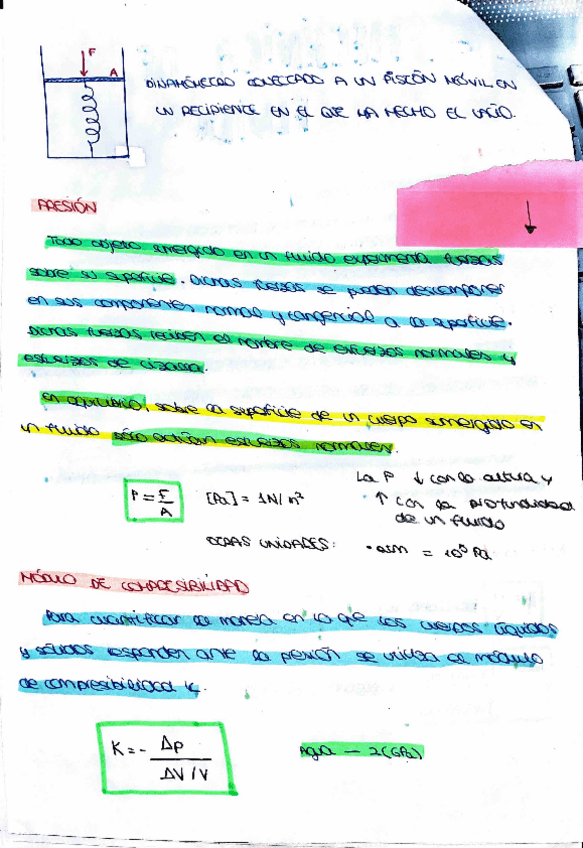 F
A
DINAMÓMETRO CONECTADO A UN PISTÓN MÓVIL EN
UN RECIPIENTE EN EL QUE HA HECHO EL VACÍO.
PRESIÓN
Todo objeto sumergido en un fluido experimenta fuerzas
sobre su superficie. Dichas fuerzas se pueden descomponer
en sus componentes normal y tangencial a la superficie.
Dichas fuerzas reciben el nombre de esfuerzos normales y
esfuerzos de cizalla.
En equilibrio, sobre la superficie de un cuerpo sumergido en
un fluido sólo actúan esfuerzos normales.
La P ↓ con la altura y
P = F/A [Pa] = 1N/m² ↑ con la profundidad
de un fluido
OTRAS UNIDADES: · atm = 10⁵ Pa
MÓDULO DE COMPRESIBILIDAD
Para cuantificar la manera en la que los cuerpos líquidos
y sólidos responden ante la presión se utiliza el módulo
de compresibilidad K.
K = - Δp / ΔV/V Agua — 2(GPa)